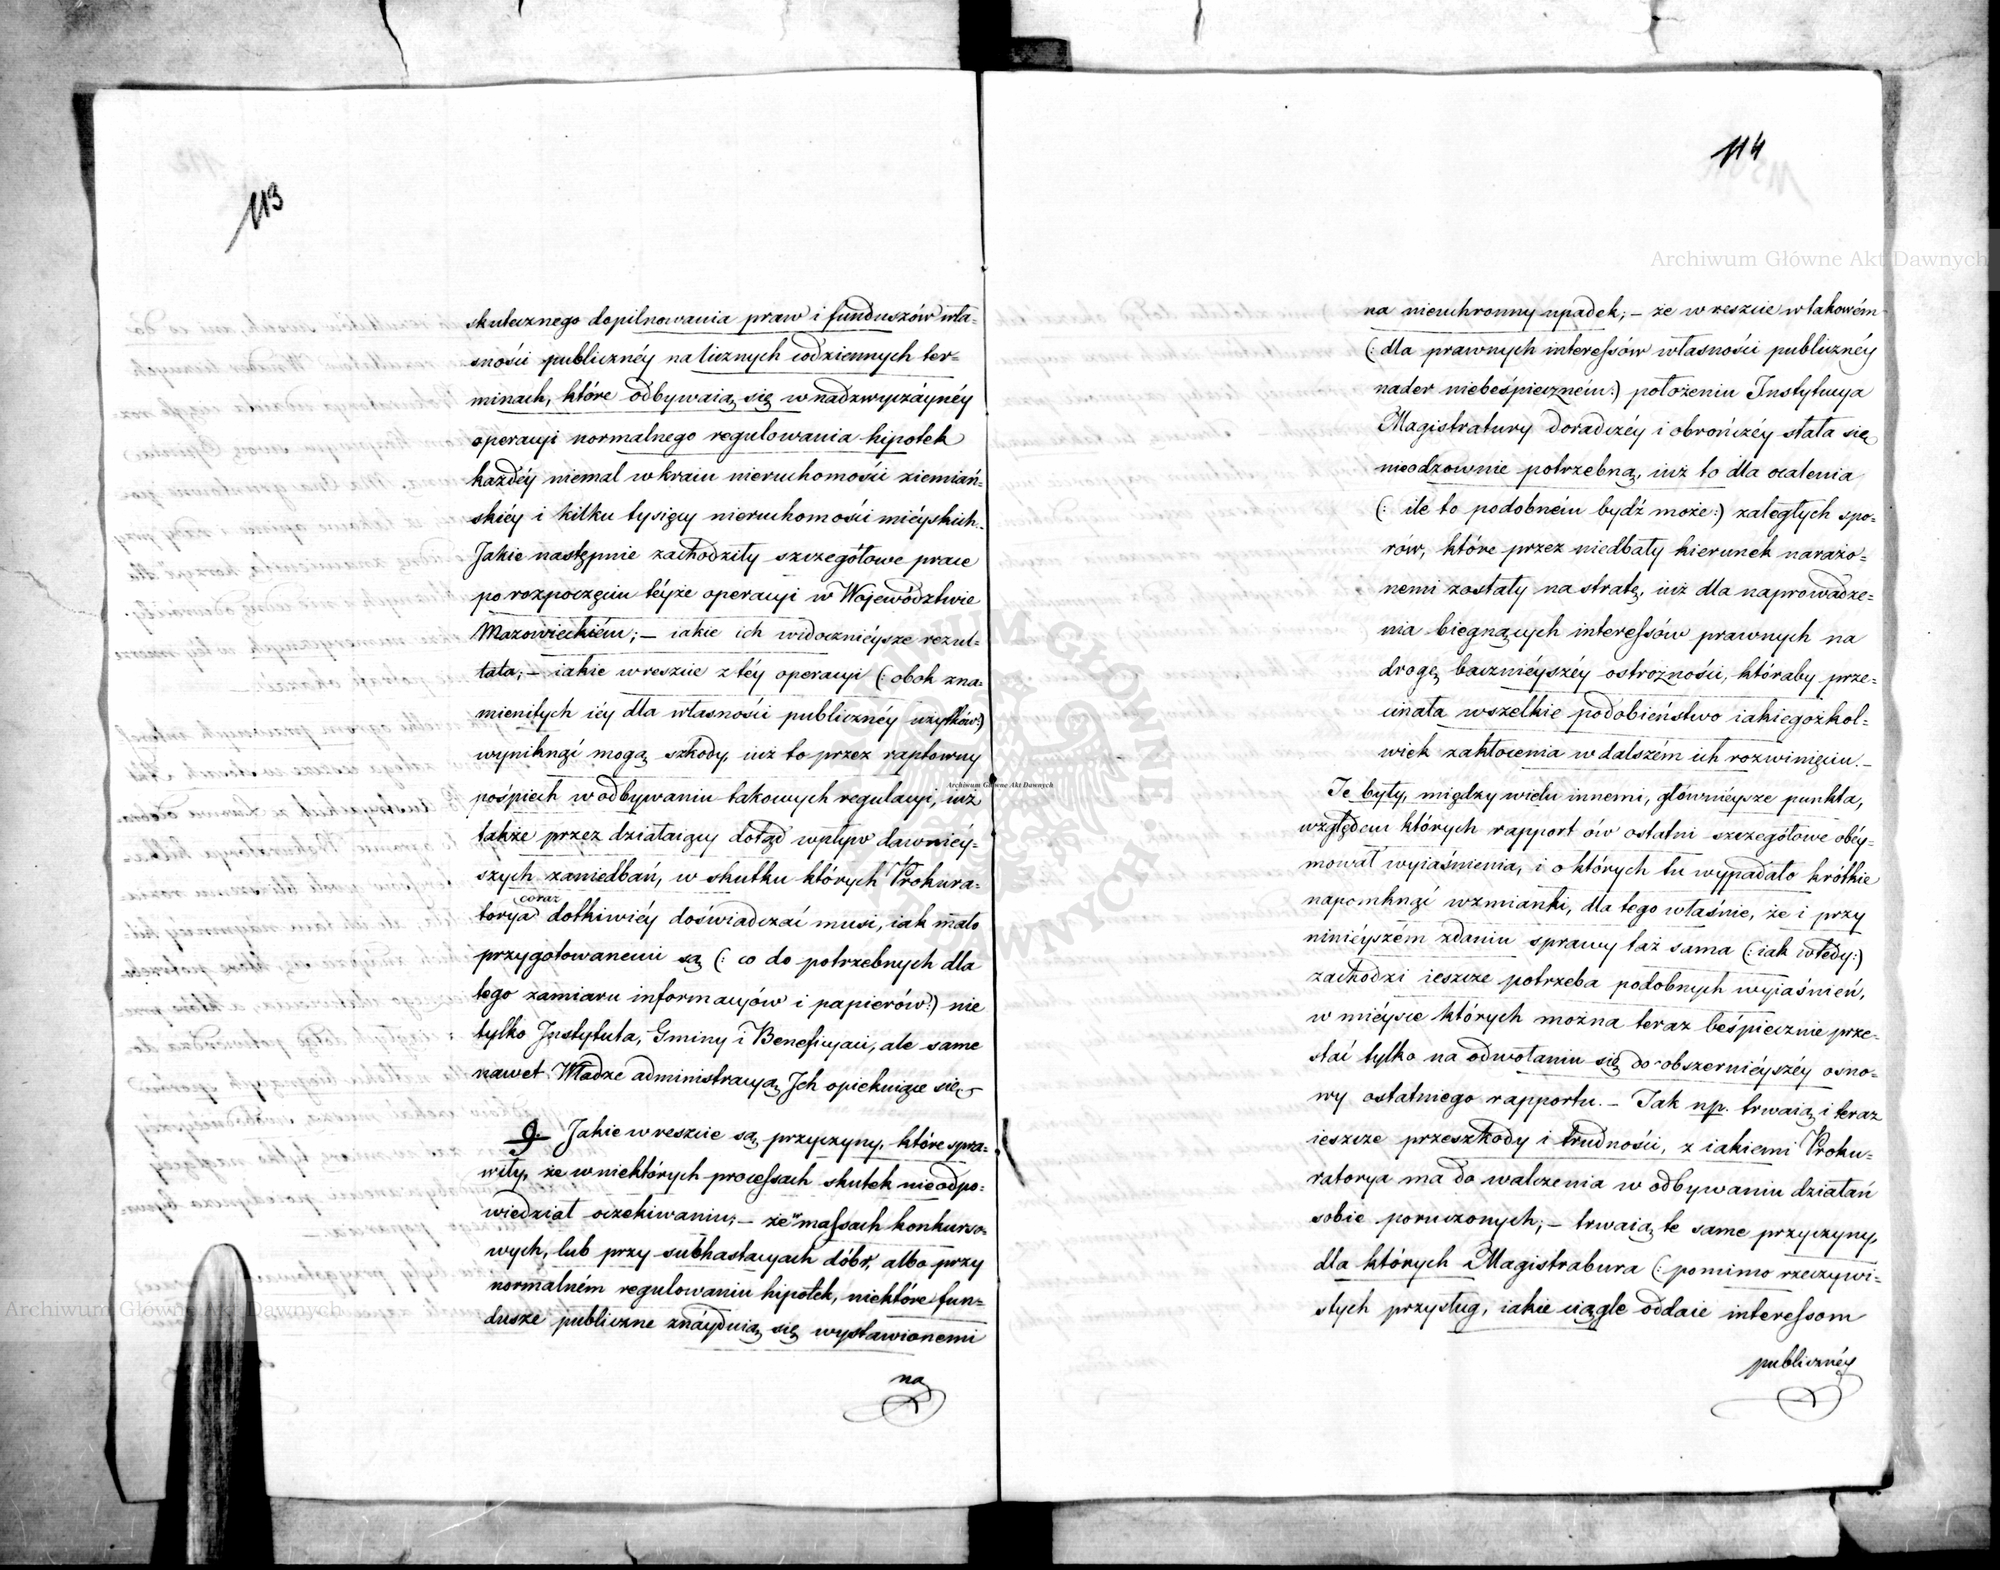 113
skutecznego dopilnowania praw i funduszów wła-
sności publicznéy na licznych codziennych ter-
minach, które odbywaią się w nadzwyczáynéy
operacyi normalnego regulowania hipotek
każdéy niemal w kraiu nieruchomości ziemiań-
skiéy i kilku tysięcy nieruchomości miéyskich.
Jakie następnie zachodziły szczegółowe prace
po rozpoczęciu téyże operacyi w Województwie
Mazowieckiém; – iakie ich widoczniéysze rezul-
tata; – iakie wreszcie z téy operacyi (: obok zna-
mienitych iéy dla własności publicznéy użytków:)
wyniknąć mogą szkody, iuż to przez raptowny
pośpiech w odbywaniu takowych regulacyi, iuż
także przez działaiący dotąd wpływ dawniéy-
szych zaniedbań, w skutku których Prokura-
coraz
torya dotkiwiéy doświadczać musi, iak mało
przygotowanemi są (: co do potrzebnych dla
tego zamiaru informacyów i papierów:) nie
tylko Instytuta, Gminy i Beneficyaci, ale same
nawet Władze administracyą Ich opiekuiące się
9. Jakie wreszcie są przyczyny, które spra-
wiły, że w niektórych processach skutek nieodpo-
wiedział oczekiwaniu; – że w massach konkurso-
wych, lub przy subhastacyach dóbr, albo przy
normalném regulowaniu hipotek, niektóre fun-
dusze publiczne znáyduią się wystawionemi
na
114
na nieuchronny upadek; – że wreszcie w takowém
(: dla prawnych interessów własności publicznéy
nader niebeśpieczném:) położeniu Instytucya
Magistratury doradczéy i obrończéy stała się
nieodzownie potrzebną, iuż to dla ocalenia
(: ile to podobném bydź może:) zaległych spo-
rów, które przez niedbały kierunek narażo-
nemi zostały na stratę, iuż dla naprowadze-
nia biegnących interessów prawnych na
drogę baczniéyszéy ostrożności, któraby prze-
cinała wszelkie podobieństwo iakiegożkol-
wiek zakłócenia w dalszém ich rozwinięciu. –
Te były, między wielu innemi, główniéysze punkta,
względem których rapport ów ostatni szczegółowe obéy-
mował wyiaśnienia, i o których tu wypadało krótkie
napomknąć wzmianki, dla tego właśnie, że i przy
niniéyszém zdaniu sprawy taż sama (: iak wtedy:)
zachodzi ieszcze potrzeba podobnych wyiaśnień,
w miéysce których można teraz beśpiecznie prze-
stać tylko na odwołaniu się do obszerniéyszéy osno-
wy ostatniego rapportu. – Tak np. trwaią i teraz
ieszcze przeszkody i trudności, z iakiemi Proku-
ratorya ma do walczenia w odbywaniu działań
sobie poruczonych; – trwaią te same przyczyny,
dla których Magistratura (: pomimo rzeczywi-
stych przysług, iakie ciągle oddaie interessom
publicznéy
Archiwum Główne Akt Dawnych
Archiwum Główne Akt Dawnych
Archiwum Główne Akt Dawnych